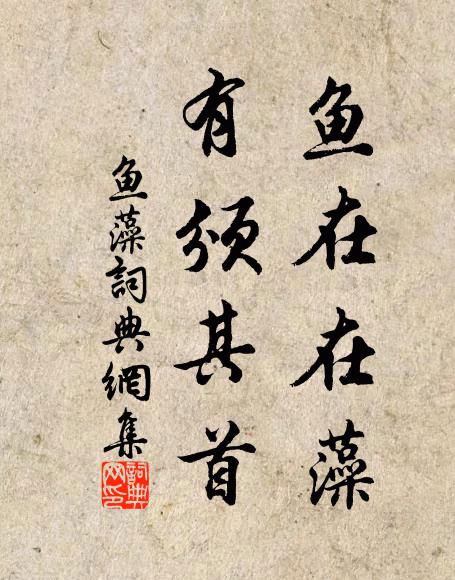 鱼在在藻
有颁其首
鱼藻詞典網集
詞典
网印